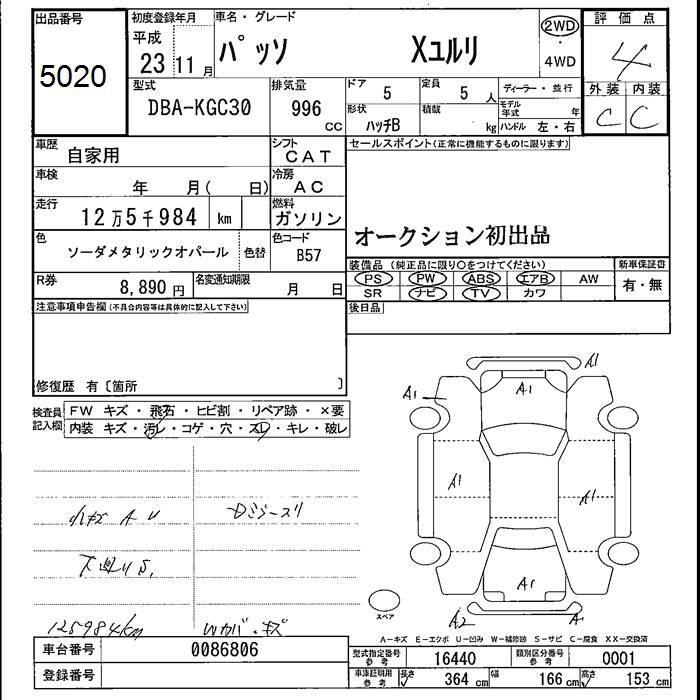 出品番号
5020
初度登録年月
平成
23 11月
車名・グレード
パッソ Xユルリ
2WD
・
4WD
評価点
4
外装 内装
C C
型式
DBA-KGC30
排気量
996
cc
ドア
5
定員
5 人
形状
ハッチB
積載
kg
ディーラー・並行
モデル年式 年
ハンドル 左・右
車歴
自家用
シフト
CAT
車検
年 月( 日)
冷房
AC
走行
12万5千984 km
燃料
ガソリン
色
ソーダメタリックオパール
色替
色コード
B57
R券
8,890円
名変通知期限
月 日
セールスポイント(正常に機能するものに限ります)
オークション初出品
装備品(純正品に限り○をつけてください)
PS PW ABS エアB AW
SR ナビ TV カワ
新車保証書
有・無
後日品
注意事項申告欄(不具合内容等は具体的に記入して下さい)
修復歴 有〔箇所 〕
検査員記入欄
FW キズ・飛石・ヒビ割・リペア跡・×要
内装 キズ・汚レ・コゲ・穴・スレ・キレ・破レ
小キズ A U
下廻りS,
125984km
Wカバ・キズ
A1
A1
A1
A1
A1
A1
A2
A
スペア
A−キズ E−エクボ U−凹み W−補修跡 S−サビ C−腐食 XX−交換済
車台番号
0086806
登録番号
型式指定番号
参考
16440
類別区分番号
参考
0001
車庫証明用
参考
長さ 364 cm
幅 166 cm
高さ 153 cm